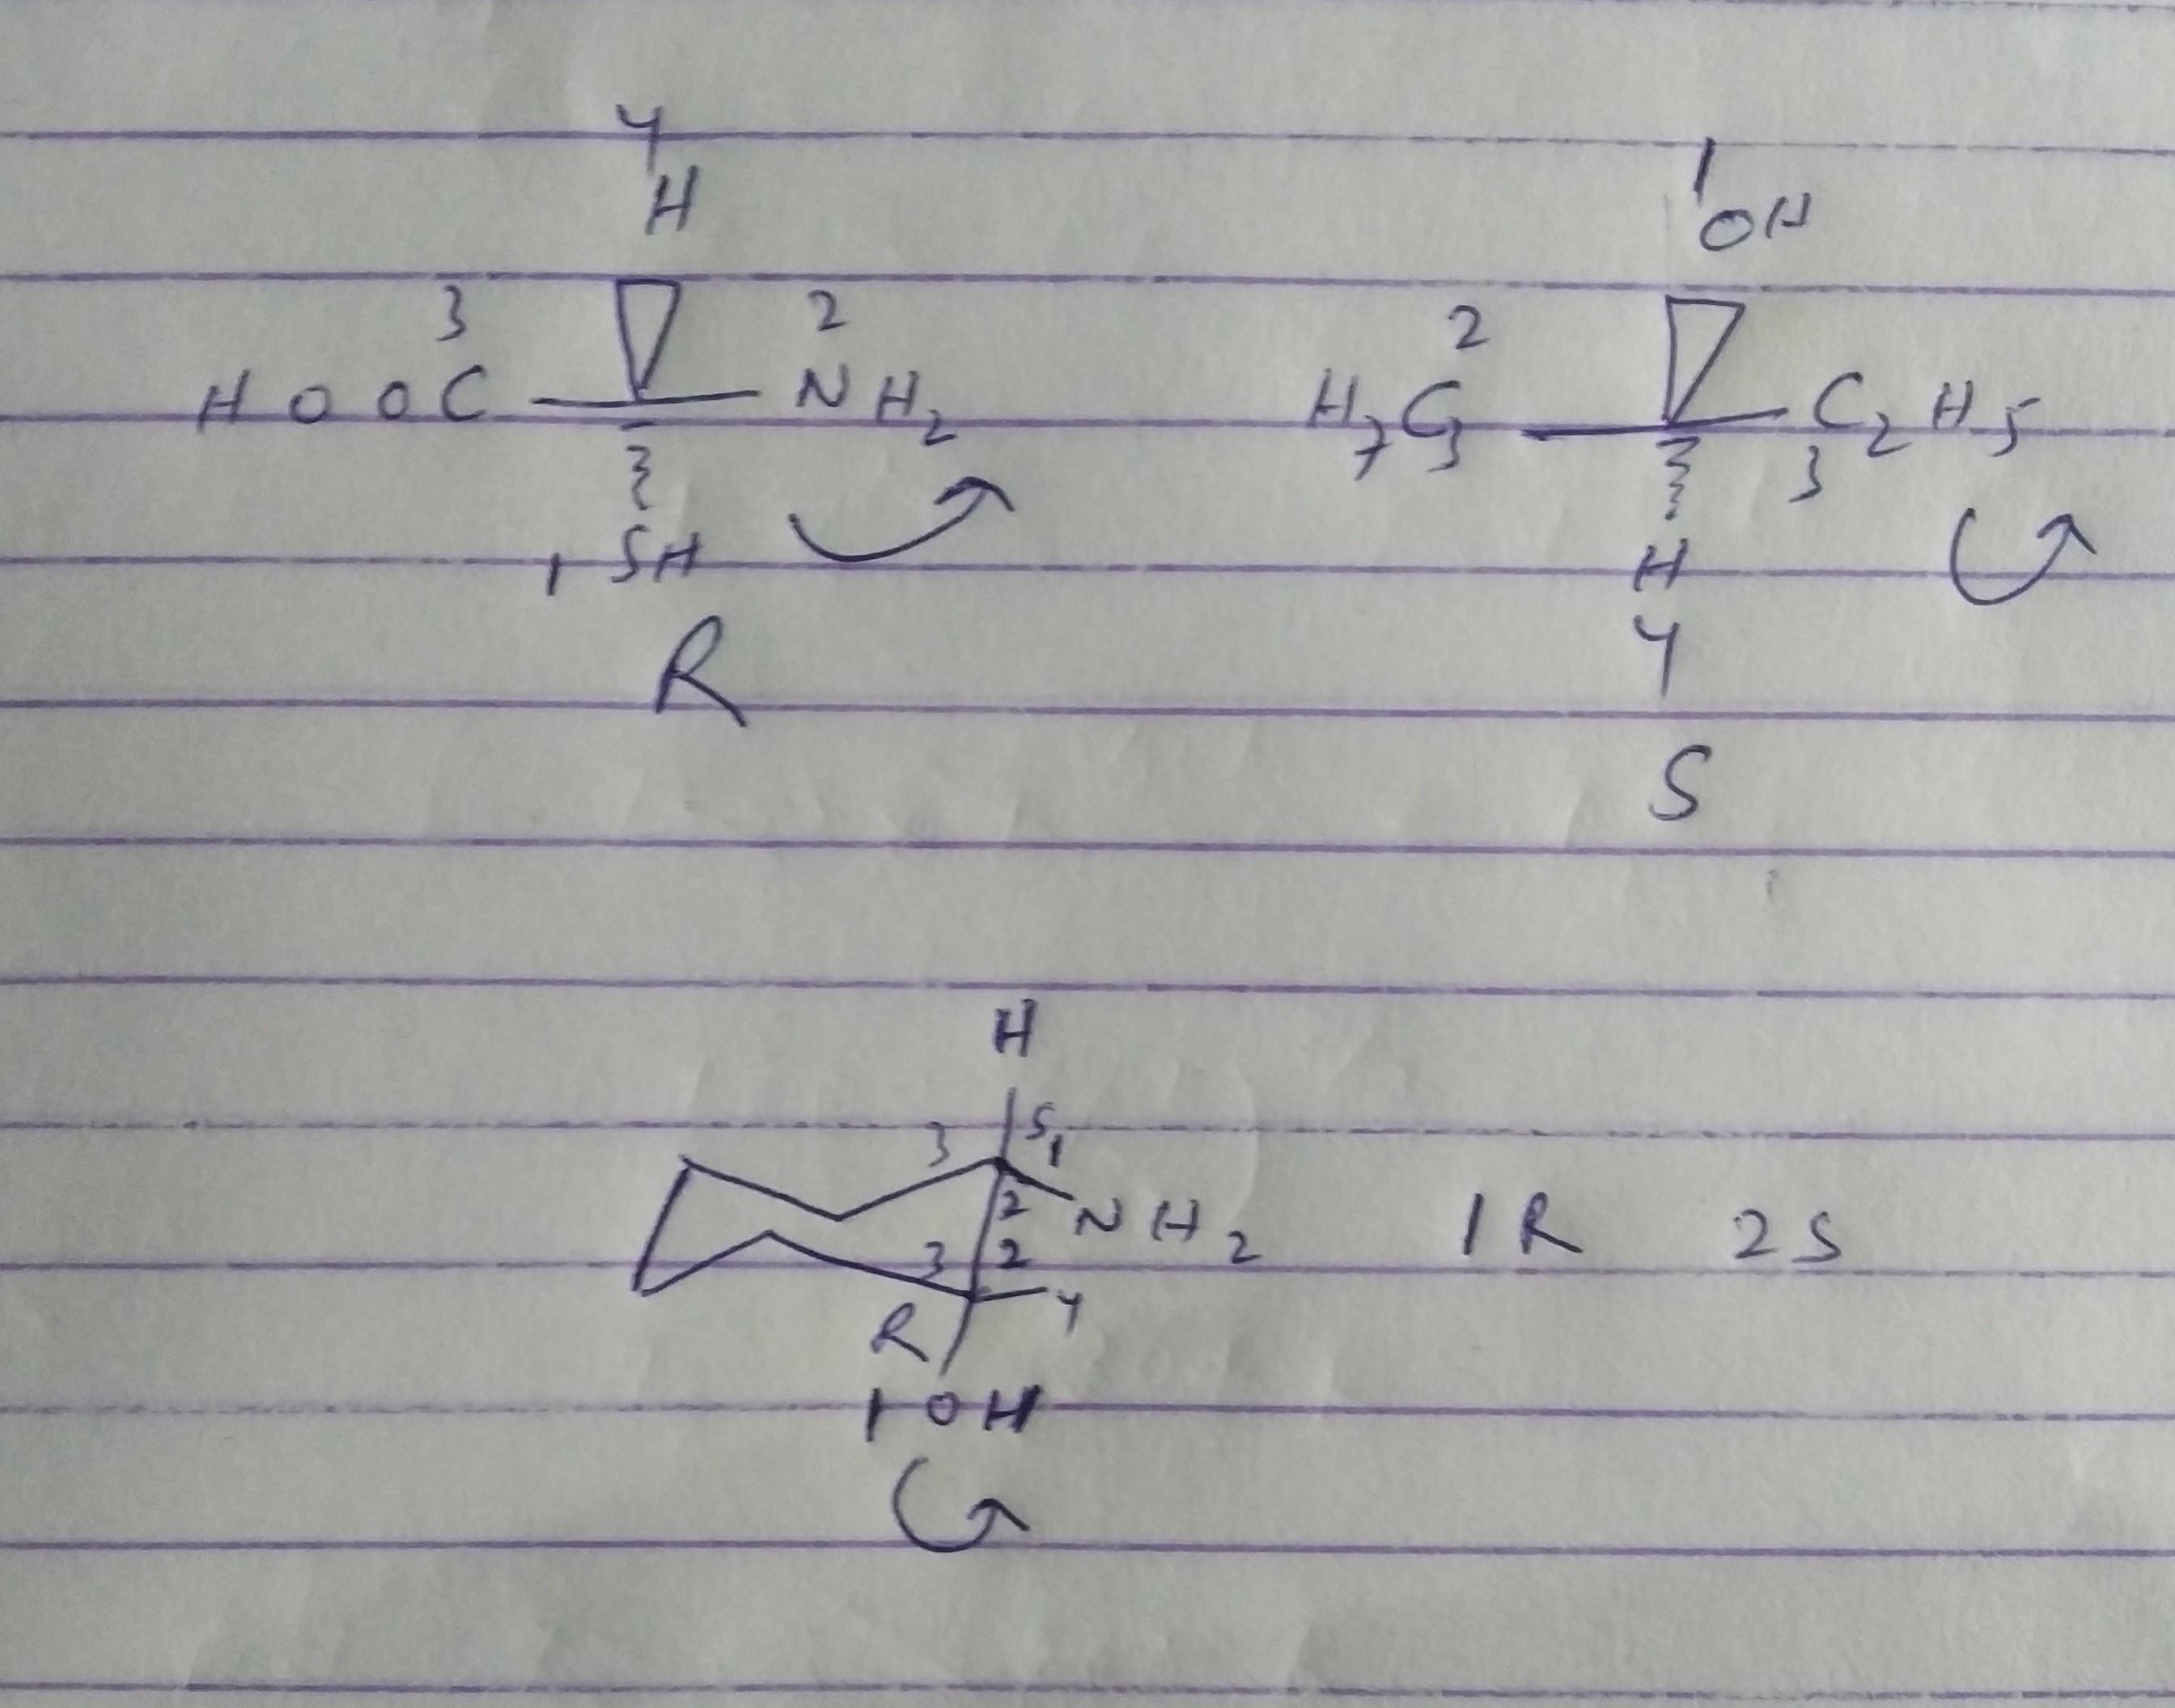 4 1
H OH
3 2 2
HOOC NH2 H7C3 C2H5
3
1 SH H
R 4
S
H
3 S 1
2 NH2 1R 2S
3 2
R 4
1 OH